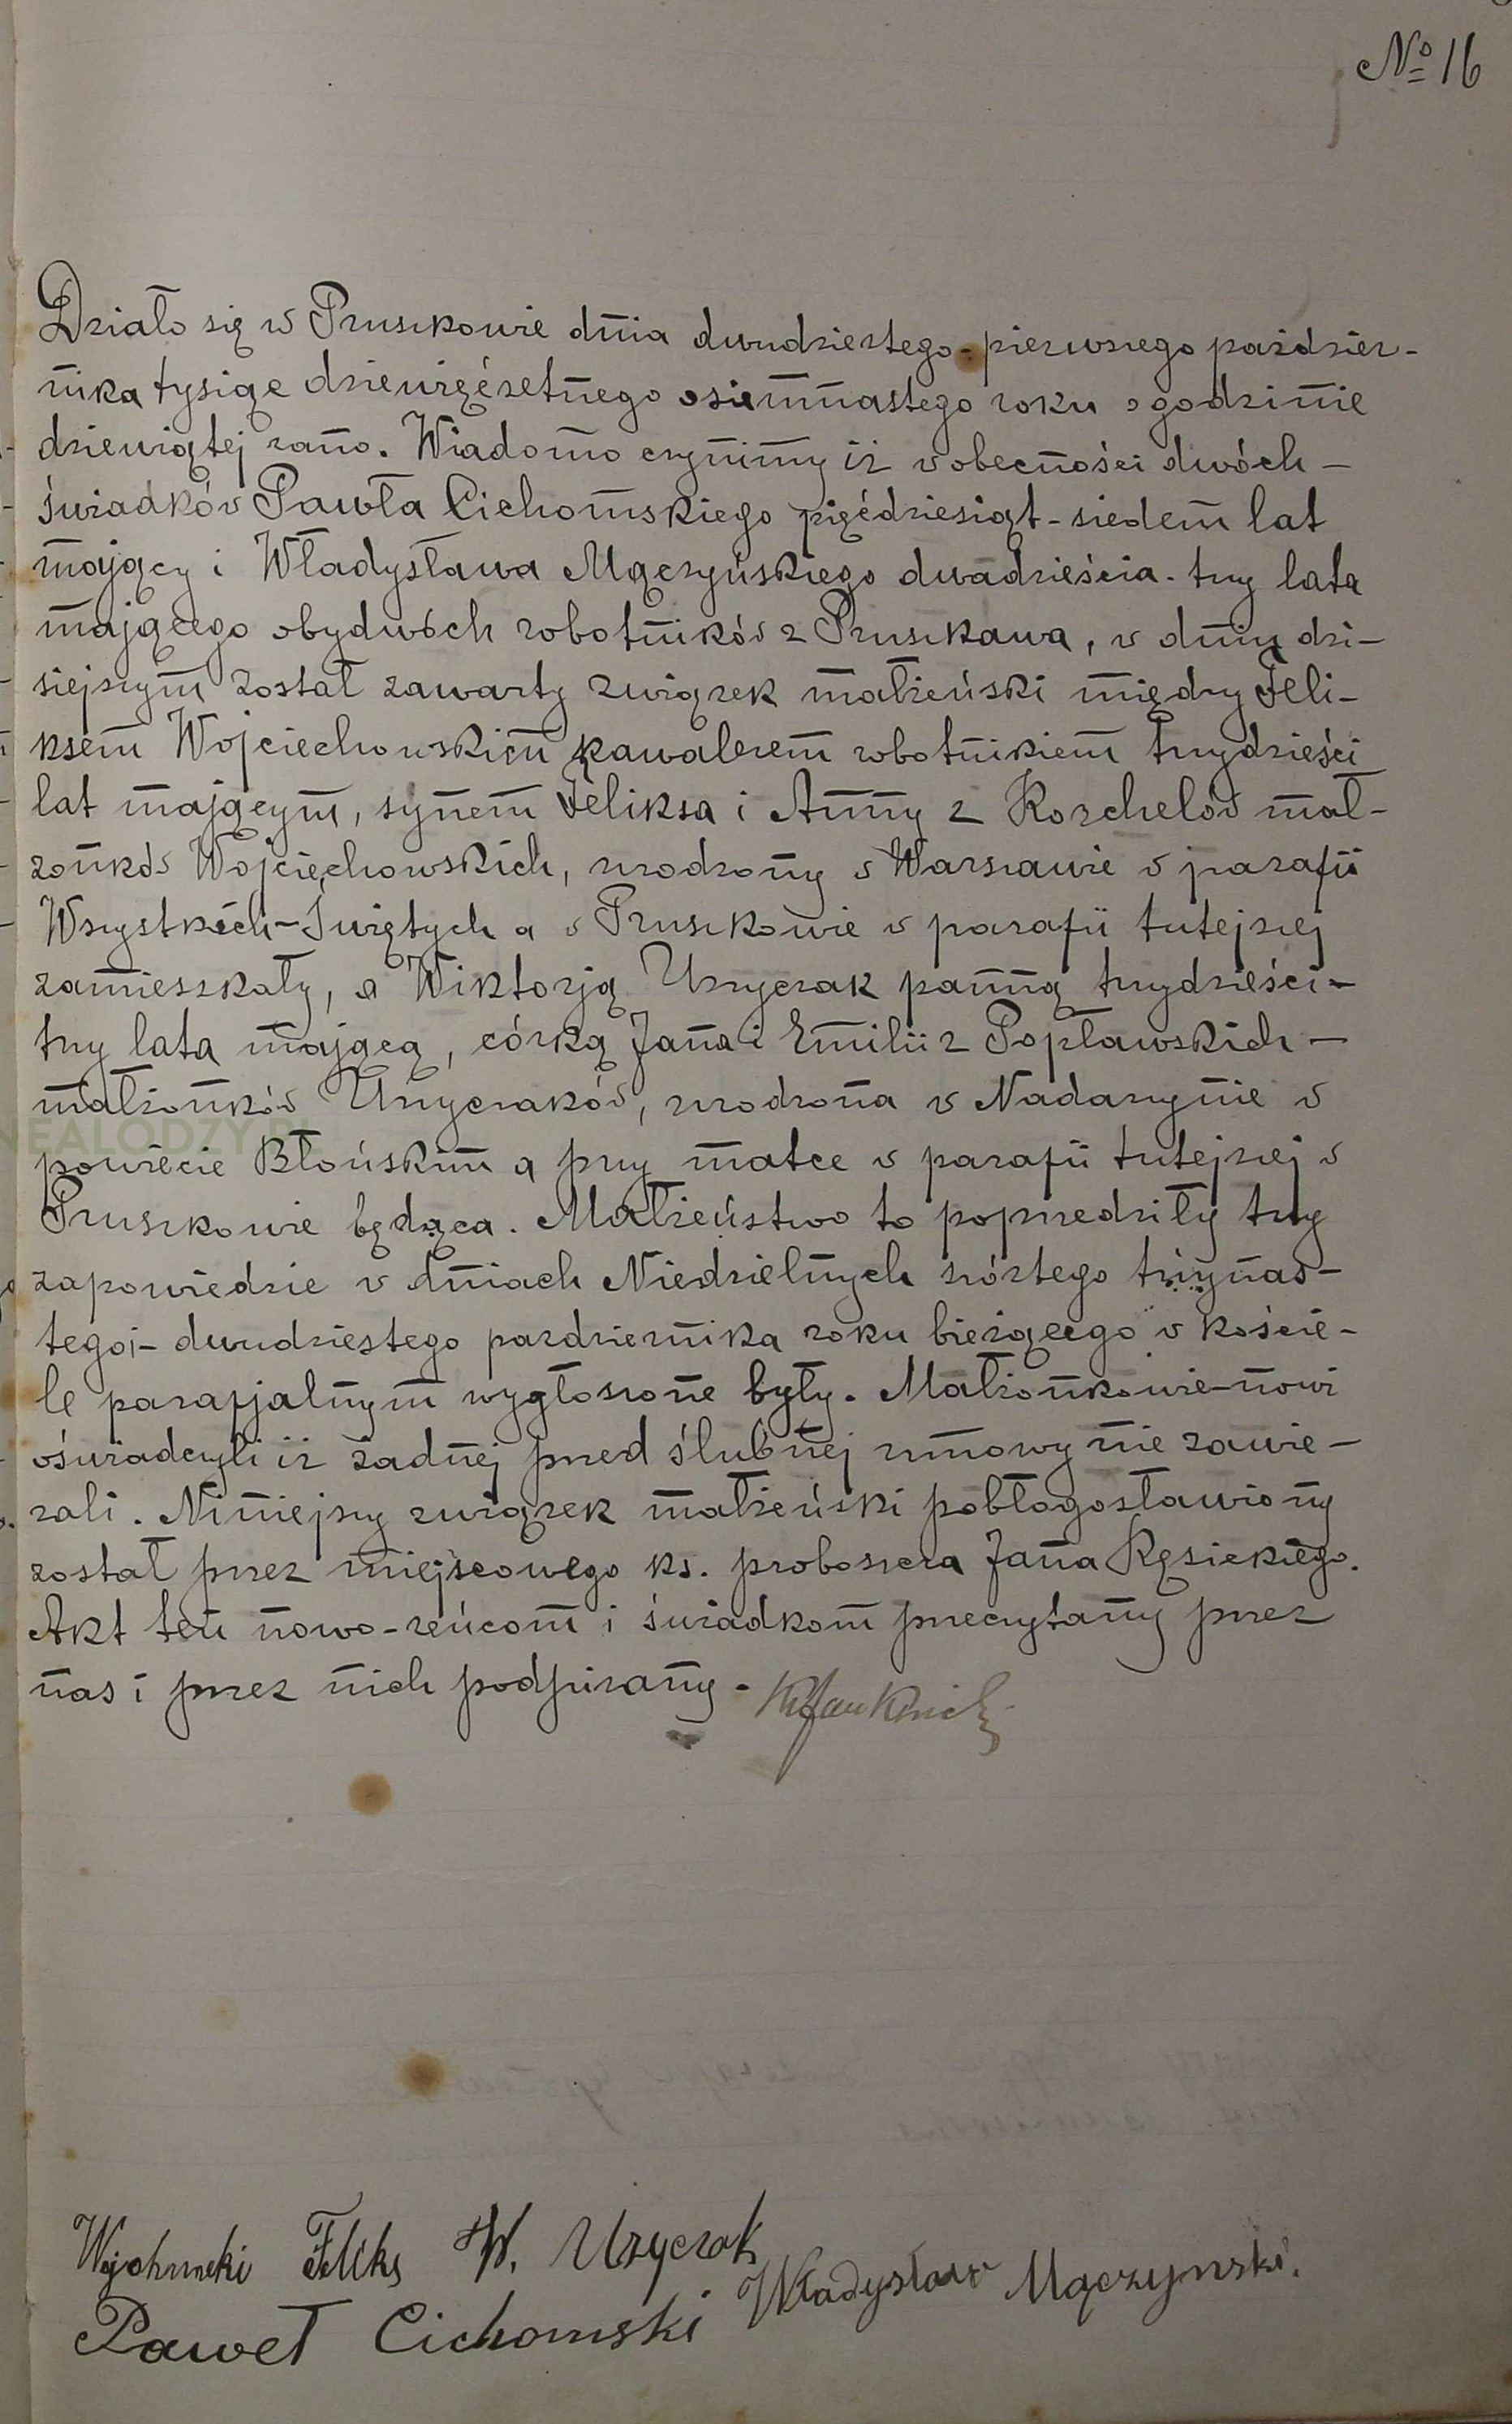 № 16
Działo się w Pruszkowie dnia dwudziestego-pierwszego paździer-
nika tysiąc dziewięćsetnego osiemnastego roku o godzinie
dziewiątej rano. Wiadomo czynimy iż w obecności dwóch –
świadków Pawła Cichomskiego pięćdziesiąt-siedem lat
mający i Władysława Mączyńskiego dwadzieścia-trzy lata
mającego obydwóch robotników z Pruszkawa, w dniu dzi-
siejszym został zawarty związek małżeński między Feli-
ksem Wojciechowskim kawalerem robotnikiem trzydzieści
lat mającym, synem Feliksa i Anny z Korchelów mał-
żonków Wojciechowskich, urodzony w Warszawie w parafii
Wszystkich-Świętych a w Pruszkowie w parafii tutejszej
zamieszkały, a Wiktorją Uzyczak panną trzydzieści-
trzy lata mającą, córką Jana i Emilii z Popławskich –
małżonków Uzyczaków, urodzona w Nadarzynie w
powiecie Błońskim a przy matce w parafii tutejszej w
Pruszkowie będąca. Małżeństwo to poprzedziły trzy
zapowiedzie w dniach Niedzielnych szóstego trzynas-
tego i-dwudziestego pazdziernika roku bieżącego w koście-
le parafjalnym wygłoszone były. Małżonkowie-nowi
oświadczyli iż żadnej przed ślubnej umowy nie zawie-
rali. Niniejszy związek małżeński pobłogosławiony
został przez miejscowego ks. proboszcza Jana Kęsickiego.
Akt ten nowo-żeńcom i świadkom przeczytany przez
nas i przez nich podpisany.
NEALODZY.
Feliks W. Uzyczak
Władysław Mączynski.
Paweł Cichomski